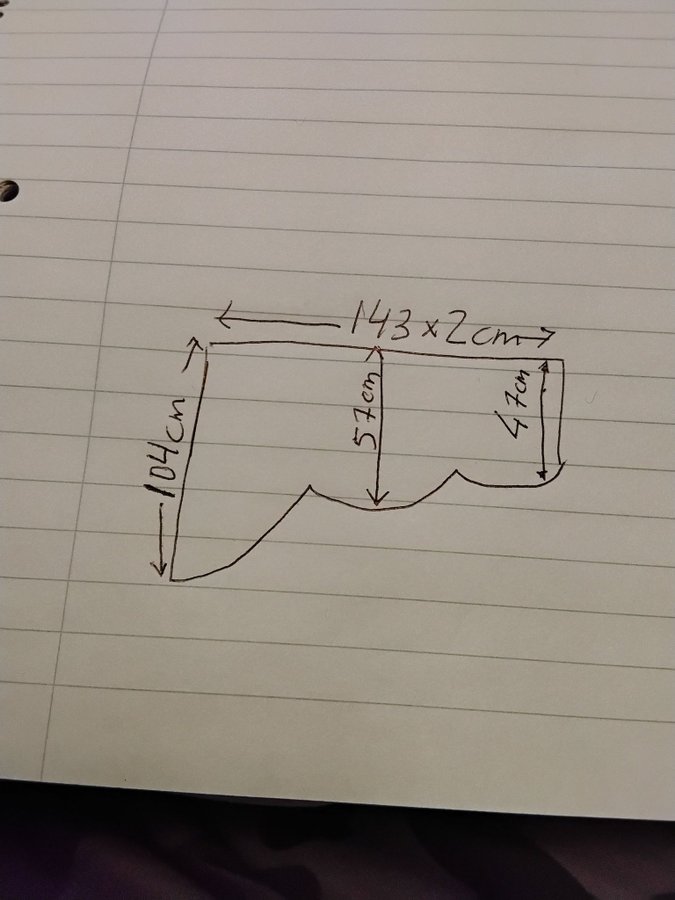 143x2cm
104cm
57cm
47cm